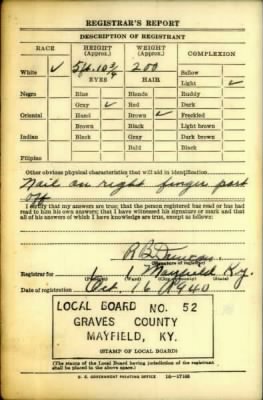 REGISTRAR'S REPORT
DESCRIPTION OF REGISTRANT
RACE HEIGHT (Approx.) WEIGHT (Approx.) COMPLEXION
White ✓ 5 ft. 10 3/4 200 Sallow
EYES HAIR Light ✓
Negro Blue Blonde Ruddy
Gray ✓ Red Dark
Oriental Hazel Brown ✓ Freckled
Brown Black Light brown
Indian Black Gray Dark brown
Bald Black
Filipino
Other obvious physical characteristics that will aid in identification
Nail on right finger part
off
I certify that my answers are true; that the person registered has read or has had
read to him his own answers; that I have witnessed his signature or mark and that
all of his answers of which I have knowledge are true, except as follows:
R B Duncan
(Signature of registrar)
Registrar for 6 Mayfield Ky.
Date of registration Oct. 16 1940
LOCAL BOARD NO. 52
GRAVES COUNTY
MAYFIELD, KY.
(STAMP OF LOCAL BOARD)
(The stamp of the Local Board having jurisdiction of the registrant
shall be placed in the above space.)
U. S. GOVERNMENT PRINTING OFFICE 16—17105